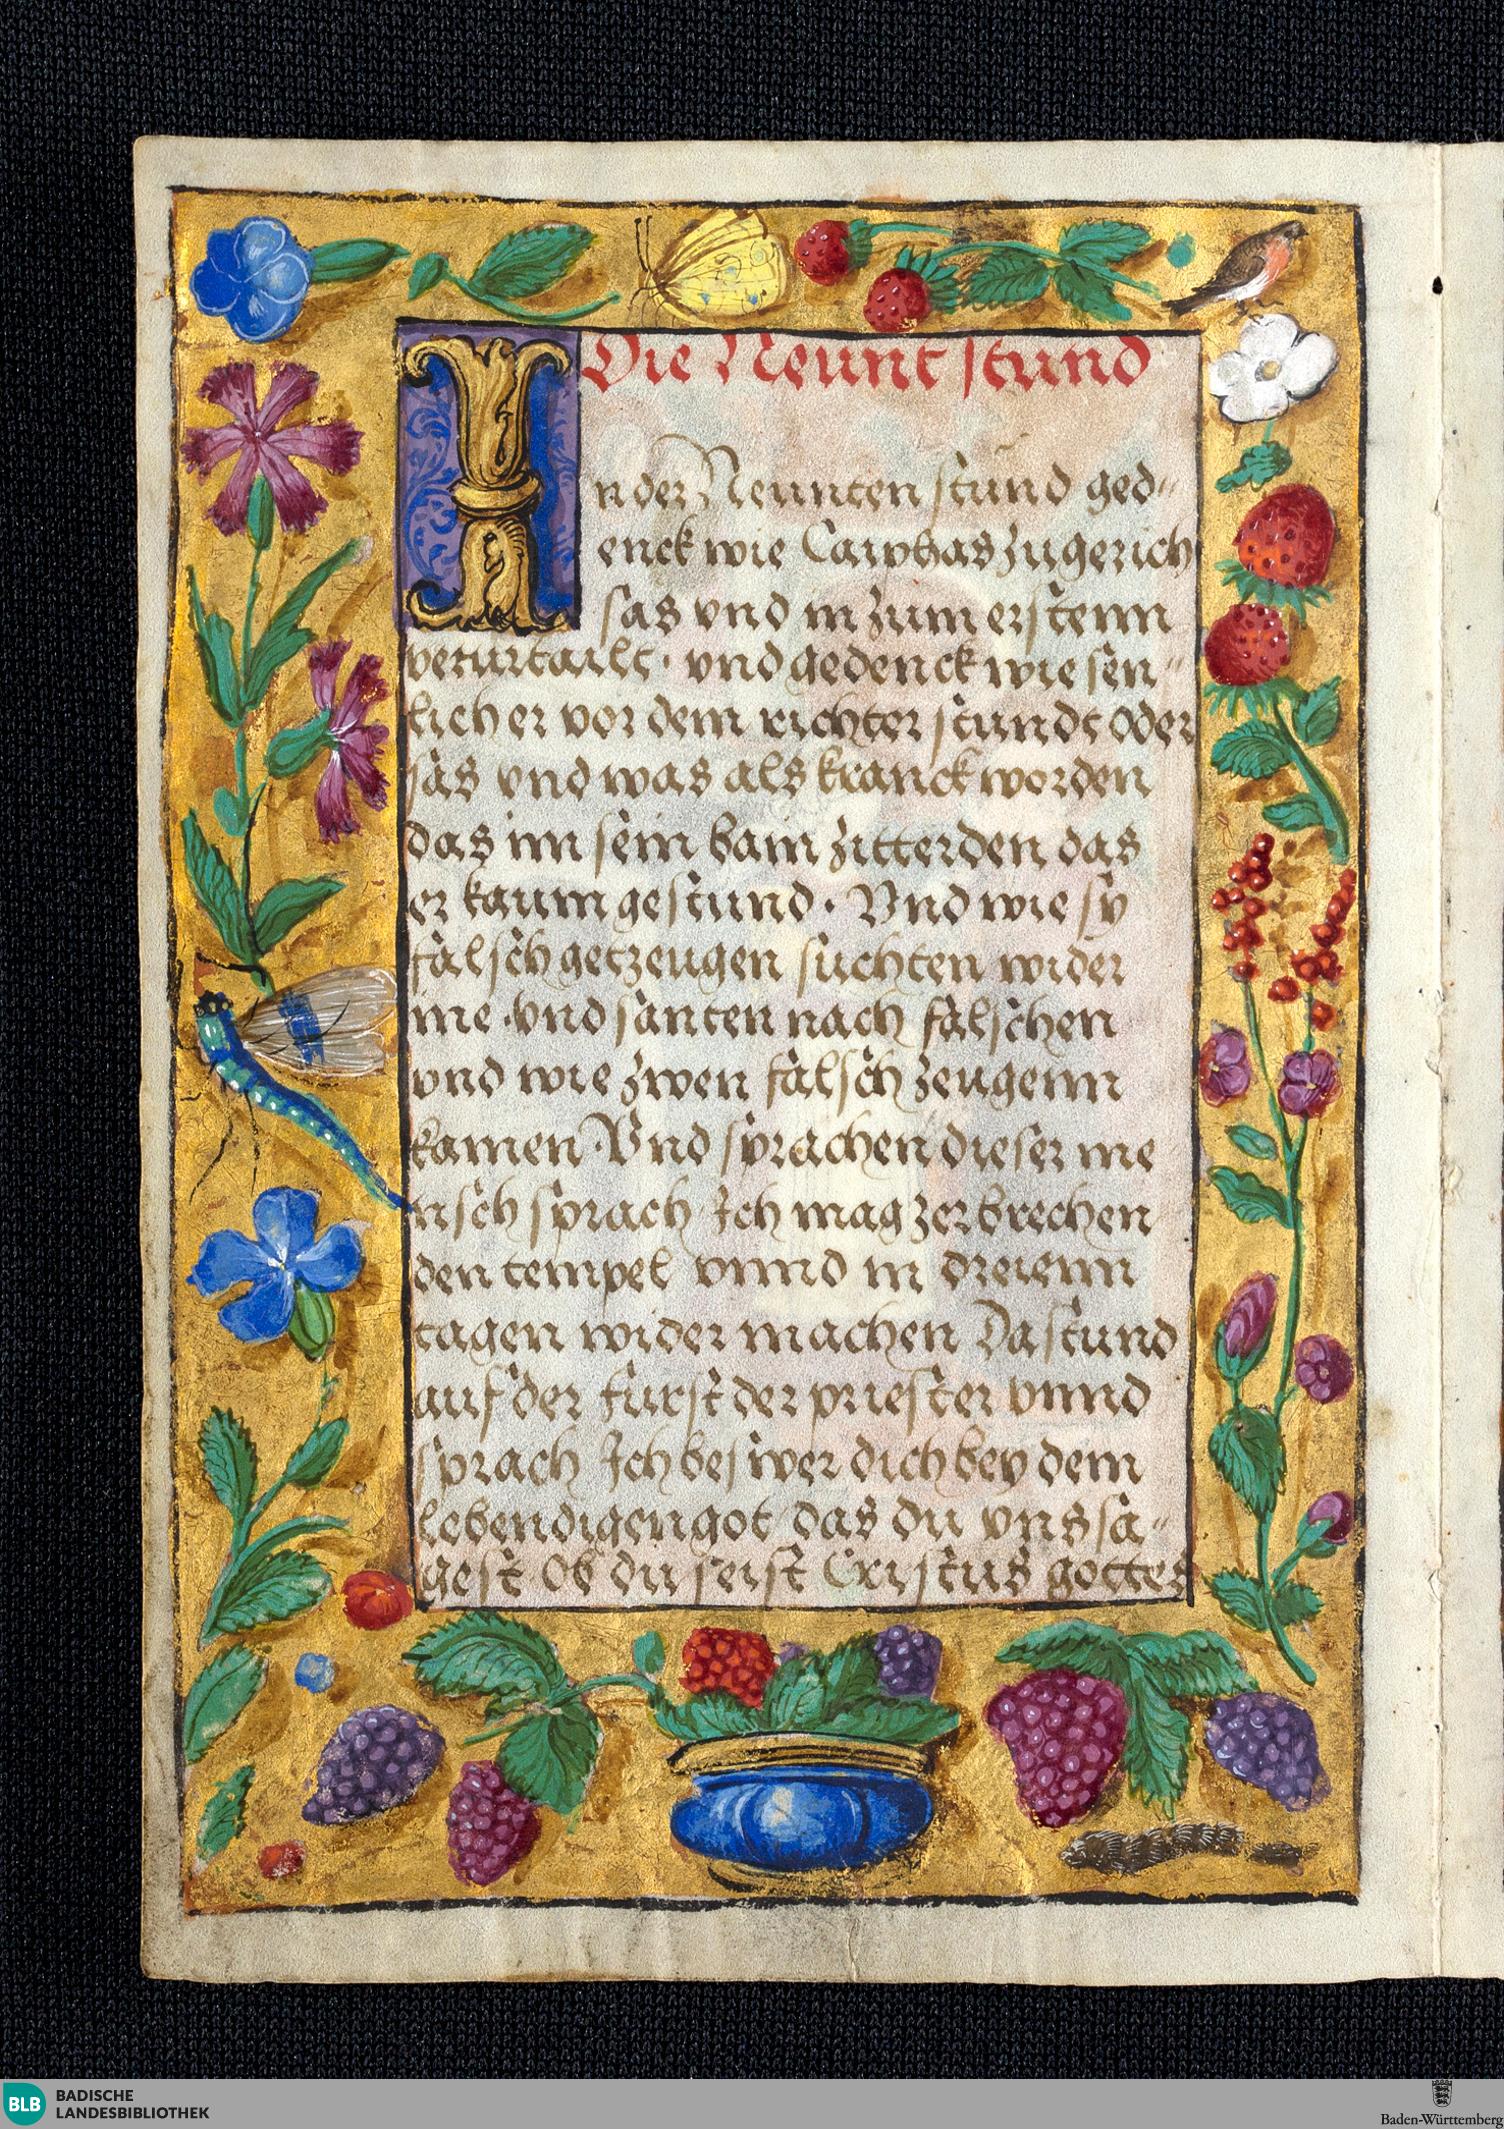 Die Neunt stund
In der Neunten stund ged=
enck wie Cayphas zu gerich
sas vnd in zum erstenn
verurtailt · vnd gedenck wie sen=
lich er vor dem richter stundt oder
sas vnd was als kranck worden
das im sein bain zitterden das
er kaum gestund · Vnd wie sy
falsch getzeugen suchten wider
ine · vnd santen nach falschen
vnd wie zwen falsch zeugenn
kamen · Vnd sprachen dieser me
nsch sprach Ich mag zerbrechen
den tempel vnnd in dreienn
tagen wider machen Da stund
auf der furst der priester vnnd
sprach Ich beswer dich bey dem
lebendigen got das du vns sa=
gest Ob du seist Cristus gottes
BLB BADISCHE
LANDESBIBLIOTHEK
Baden-Württemberg